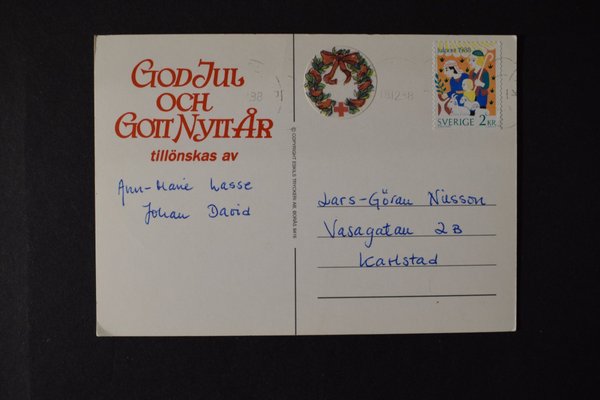 GOD JUL
OCH
GOTT NYTT ÅR
tillönskas av
Ann-Marie Lasse
Johan David
© COPYRIGHT ESKILS TRYCKERI AB, BORÅS
Julpost 1988
SVERIGE 2 KR
Lars-Göran Nilsson
Vasagatan 2B
Karlstad